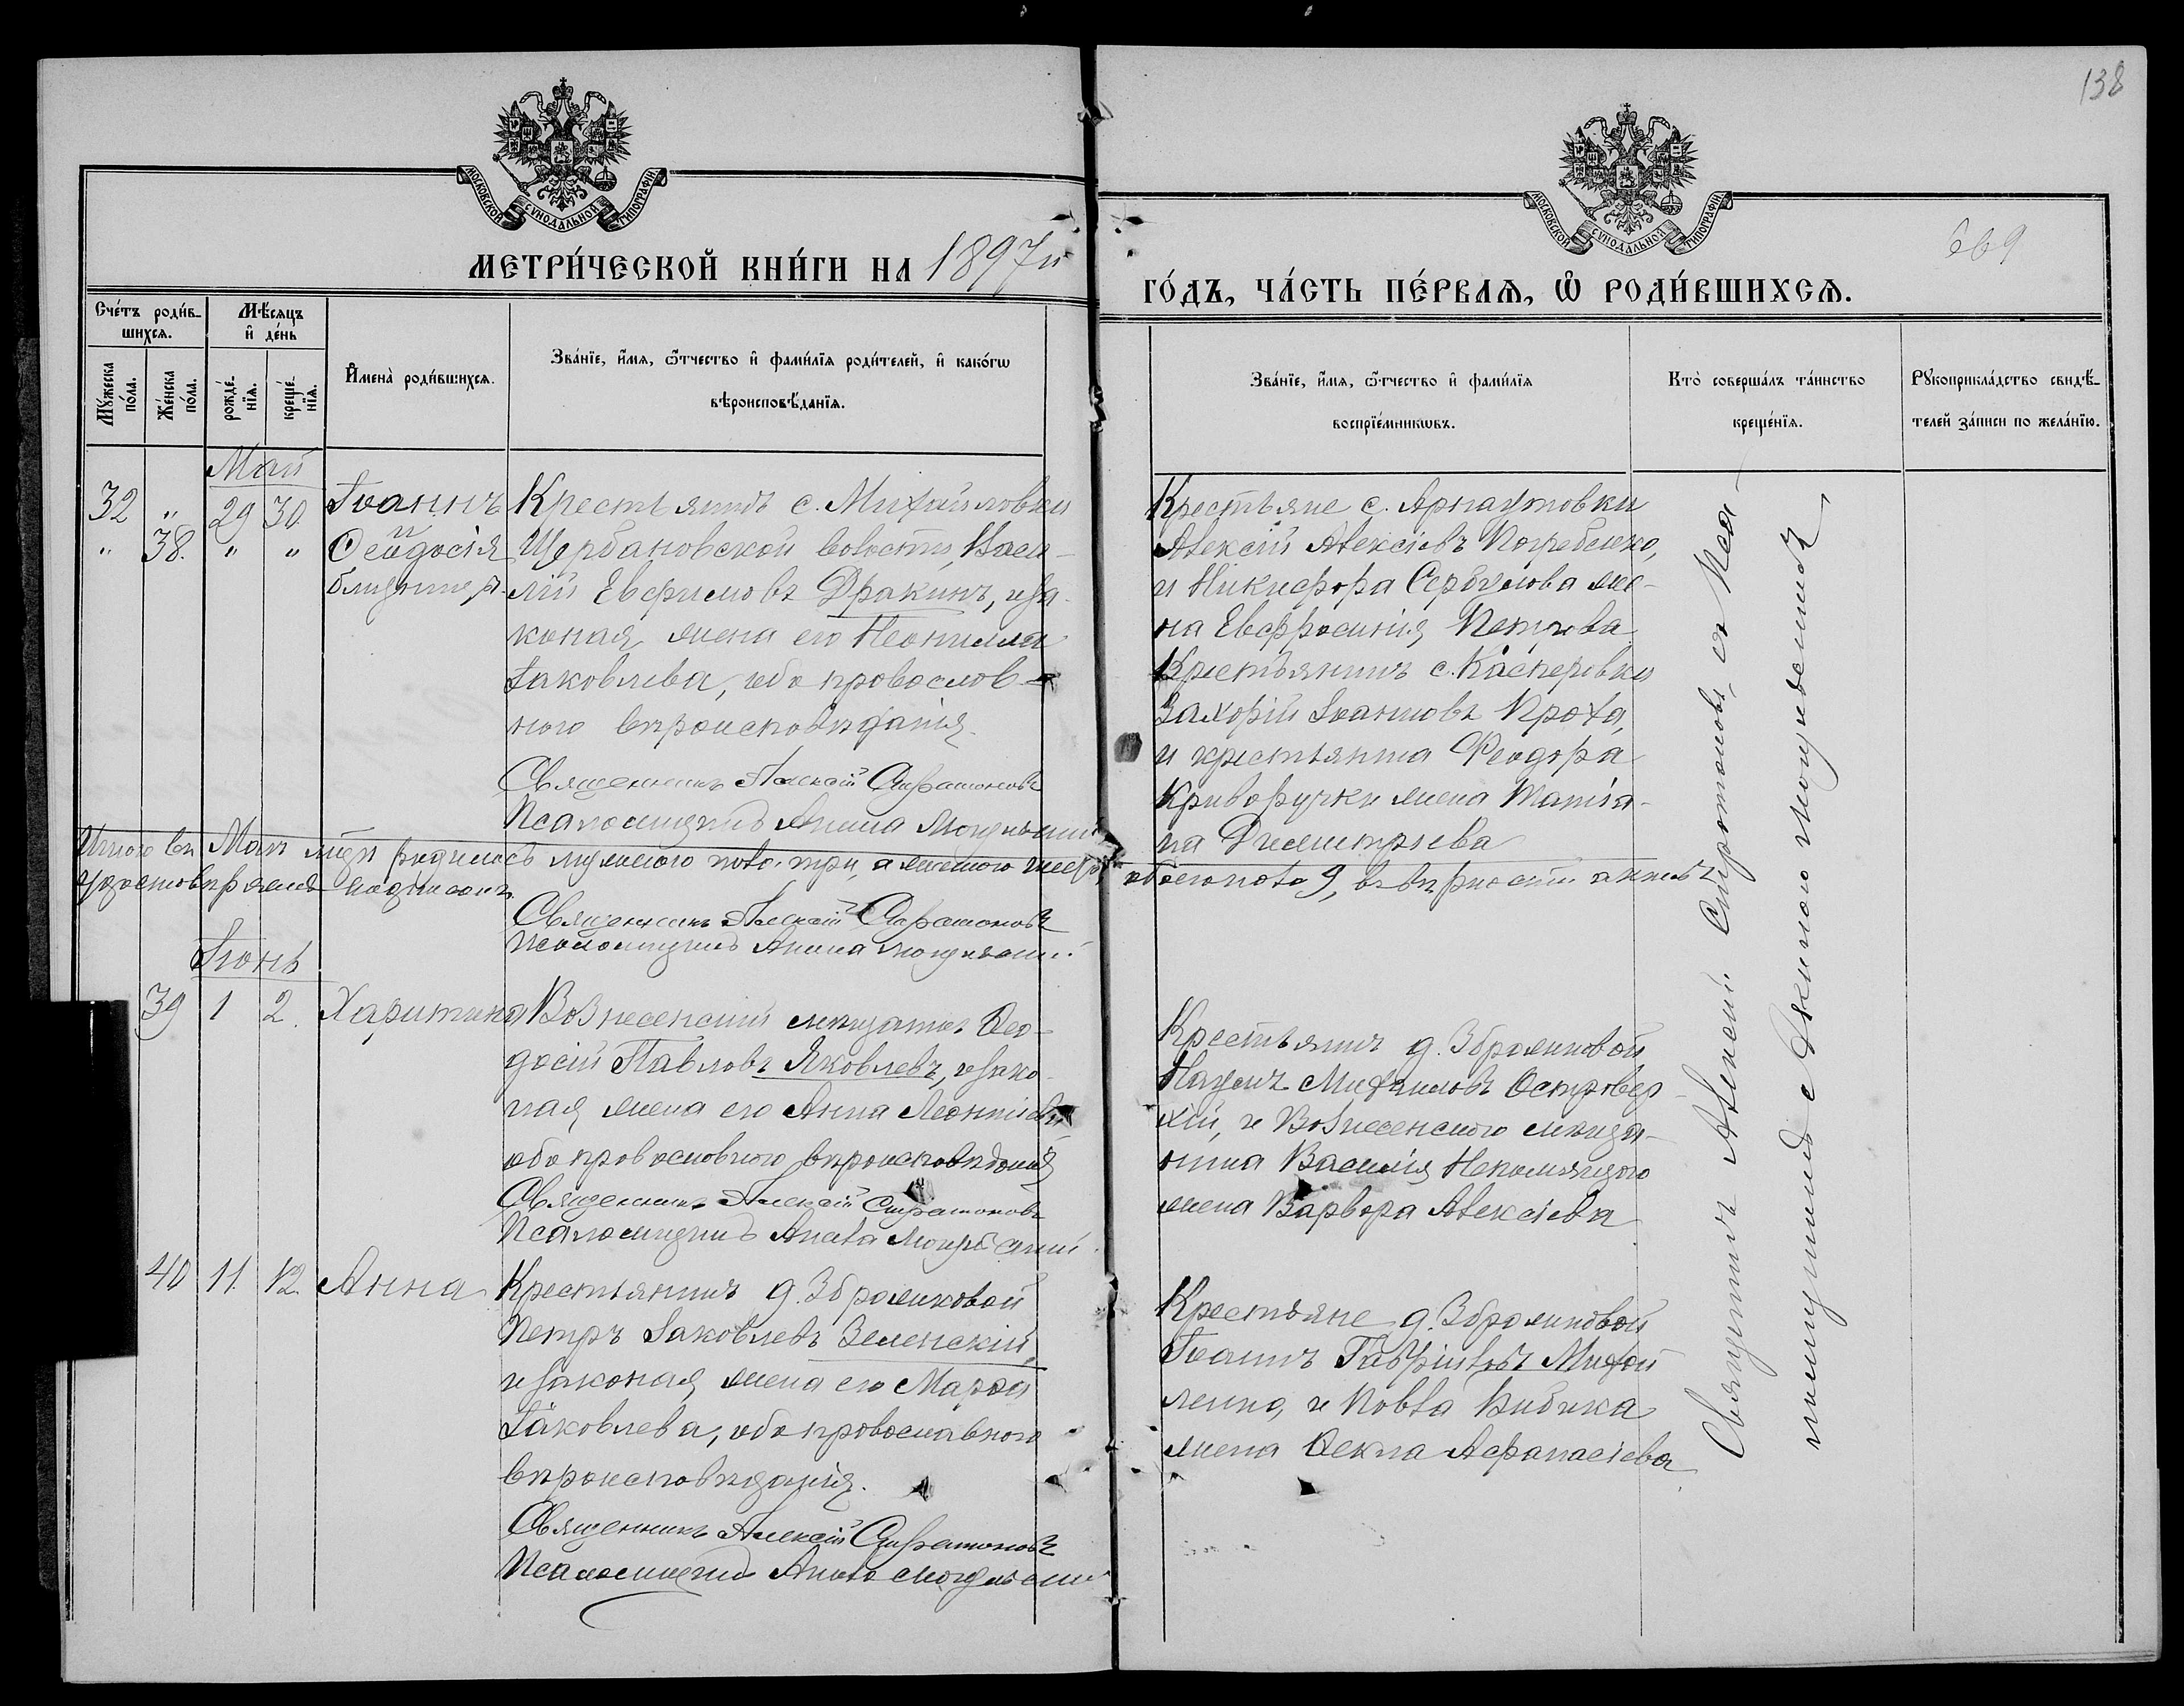 138
669
МОСКОВСКОЙ СѴНОДАЛЬНОЙ ТИПОГРАФІИ
МОСКОВСКОЙ СѴНОДАЛЬНОЙ ТИПОГРАФІИ
МЕТРИ́ЧЕСКОЙ КНИ́ГИ НА 1897й
ГО́ДЪ, ЧА́СТЬ ПЕ́РВАѦ, Ѡ҆ РОДИ́ВШИХСѦ.
Сче́тъ роди́в-
шихсѧ.
Мꙋ́жеска
по́ла.
Же́нска
по́ла.
Мѣ́сяцъ
и҆ де́нь
рожде́-
нїѧ.
креще́-
нїѧ.
И҆мена̀ роди́вшихсѧ.
Зва́нїе, и҆́мѧ, ѻ҆́тчество и҆ фами́лїѧ роди́телей, и҆ како́гѡ
вѣроисповѣ́данїѧ.
Зва́нїе, и҆́мѧ, ѻ҆́тчество и҆ фами́лїѧ
воспрїе́мникѡвъ.
Кто̀ соверша́лъ та́инство
креще́нїѧ.
Рꙋкоприкла́дство свидѣ́-
телей за́писи по жела́нїю.
Май
32 " 29 30 Іоаннъ
" 38. " " Ѳеодосія
близнецы
Крестьянинъ с. Михайловки
Щербановской волости, Васи-
лій Евфимовъ Дракинъ, и за-
коная жена его Неонилла
Іаковлева, оба провослов-
ного вѣроисповѣданія.
Священникъ Алексій Стратоновъ
Псаломщикъ
Крестьяне с. Арнаутовки
Алексій Алексіевъ Погребенко,
и Никифора Сербулова же-
на Евфросинія Петрова
Крестьянинъ с. Касперовки
Захорій Іоанновъ Прота,
и крестьянина Феодора
Криворучки жена Татіа-
на Димитріева
Итого въ Маѣ мцѣ родилось мужского пола три, а женского шесть, обоего пола 9, въ вѣрности актовъ
удостовѣряемъ подписомъ
Священникъ Алексій Стратоновъ
Псаломщикъ
Іюнь
39 1 2. Харитина
Вознесенскій мѣщанинъ Ѳео-
досій Павловъ Яковлевъ, и зако-
ная жена его Анна Леонтіева,
оба провословного вѣроисповѣданія
Священникъ Алексій Стратоновъ
Псаломщикъ
Крестьянинъ д. Збрамиковой
Наумъ Михаиловъ Островер-
хій, и Вознесенского мѣща-
нина Василія Непомнящого
жена Варвора Алексіева
40 11. 12. Анна
Крестьянинъ д. Збрамиковой
Петръ Іаковлевъ Зеленскій
и законая жена его Марѳа
Іаковлева, оба провославного
вѣроисповѣданія.
Священникъ Алексій Стратоновъ
Псаломщикъ
Крестьяне д. Збрамиковой
Іоаннъ Гавріиловъ Михай
ленко, и Повла Бибика
жена Ѳекла Афанасіева
Священникъ Алексій Стратоновъ, съ Пса-
ломщикомъ